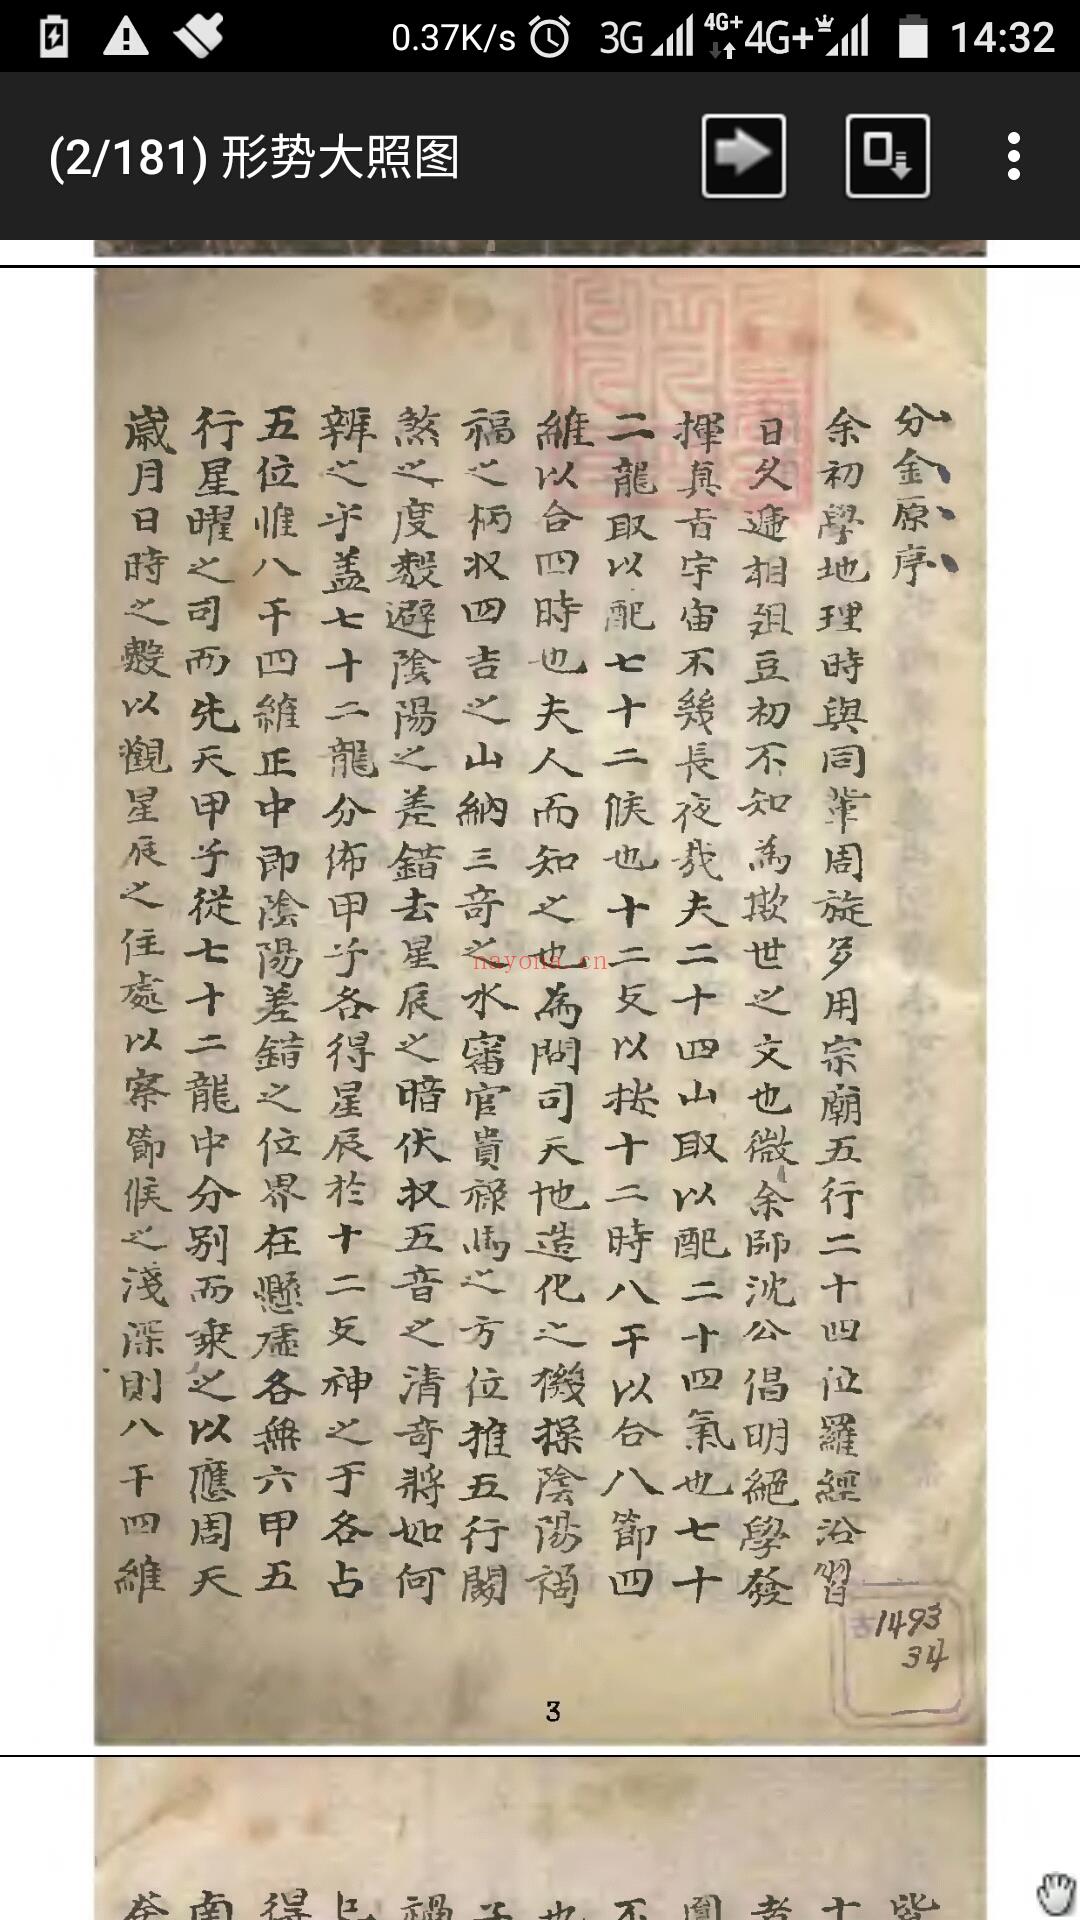 0.37K/s 3G 4G+ 4G+ 14:32
(2/181) 形势大照图
分金原序
余初學地理時與同軰周旋多用宗廟五行二十四位羅經沿習
日久遞相俎豆初不知為欺世之文也微余師沈公倡明絕學發
揮真旨宇宙不幾長夜哉夫二十四山取以配二十四氣也七十
二龍取以配七十二候也十二支以按十二時八干以合八節四
維以合四時也夫人而知之也為問司天地造化之機操陰陽禍
福之柄収四吉之山納三奇之水審官貴祿馬之方位推五行關
煞之度數避陰陽之差錯去星辰之暗伏収五音之清奇將如何
辨之乎盖七十二龍分佈甲子各得星辰於十二支神之于各占
五位惟八干四維正中即陰陽差錯之位界在懸虛各無六甲五
行星曜之司而先天甲子從七十二龍中分別而乘之以應周天
歲月日時之數以觀星辰之住處以察節候之淺深則八干四維
nayona.cn
古1493
34
3